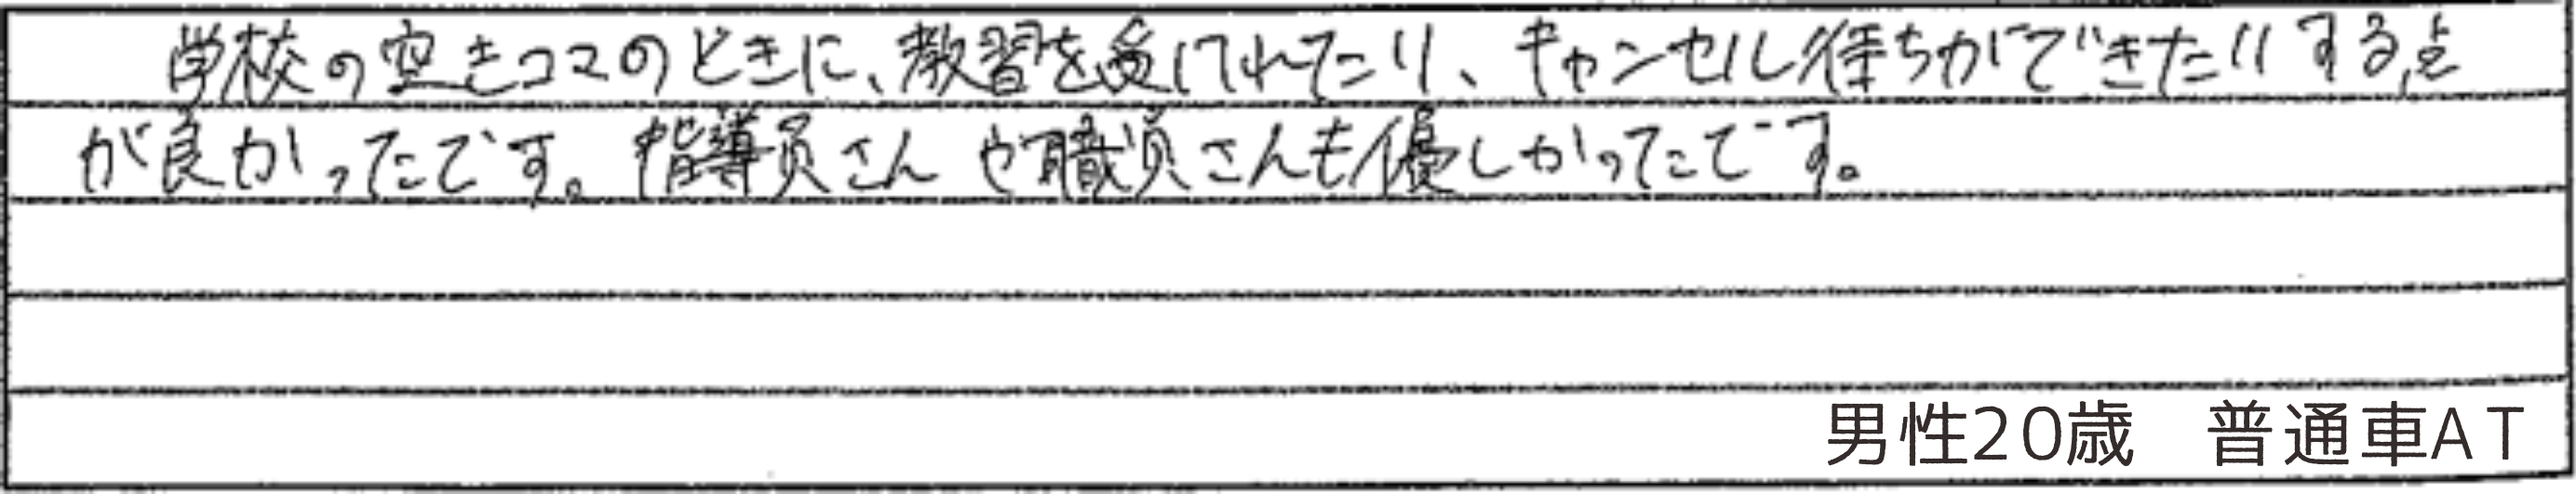 学校の空きコマのときに、教習を受けれたり、キャンセル待ちができたりする点
が良かったです。指導員さんや職員さんも優しかったです。
男性20歳 普通車AT